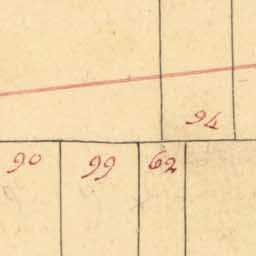 94
90 99 62